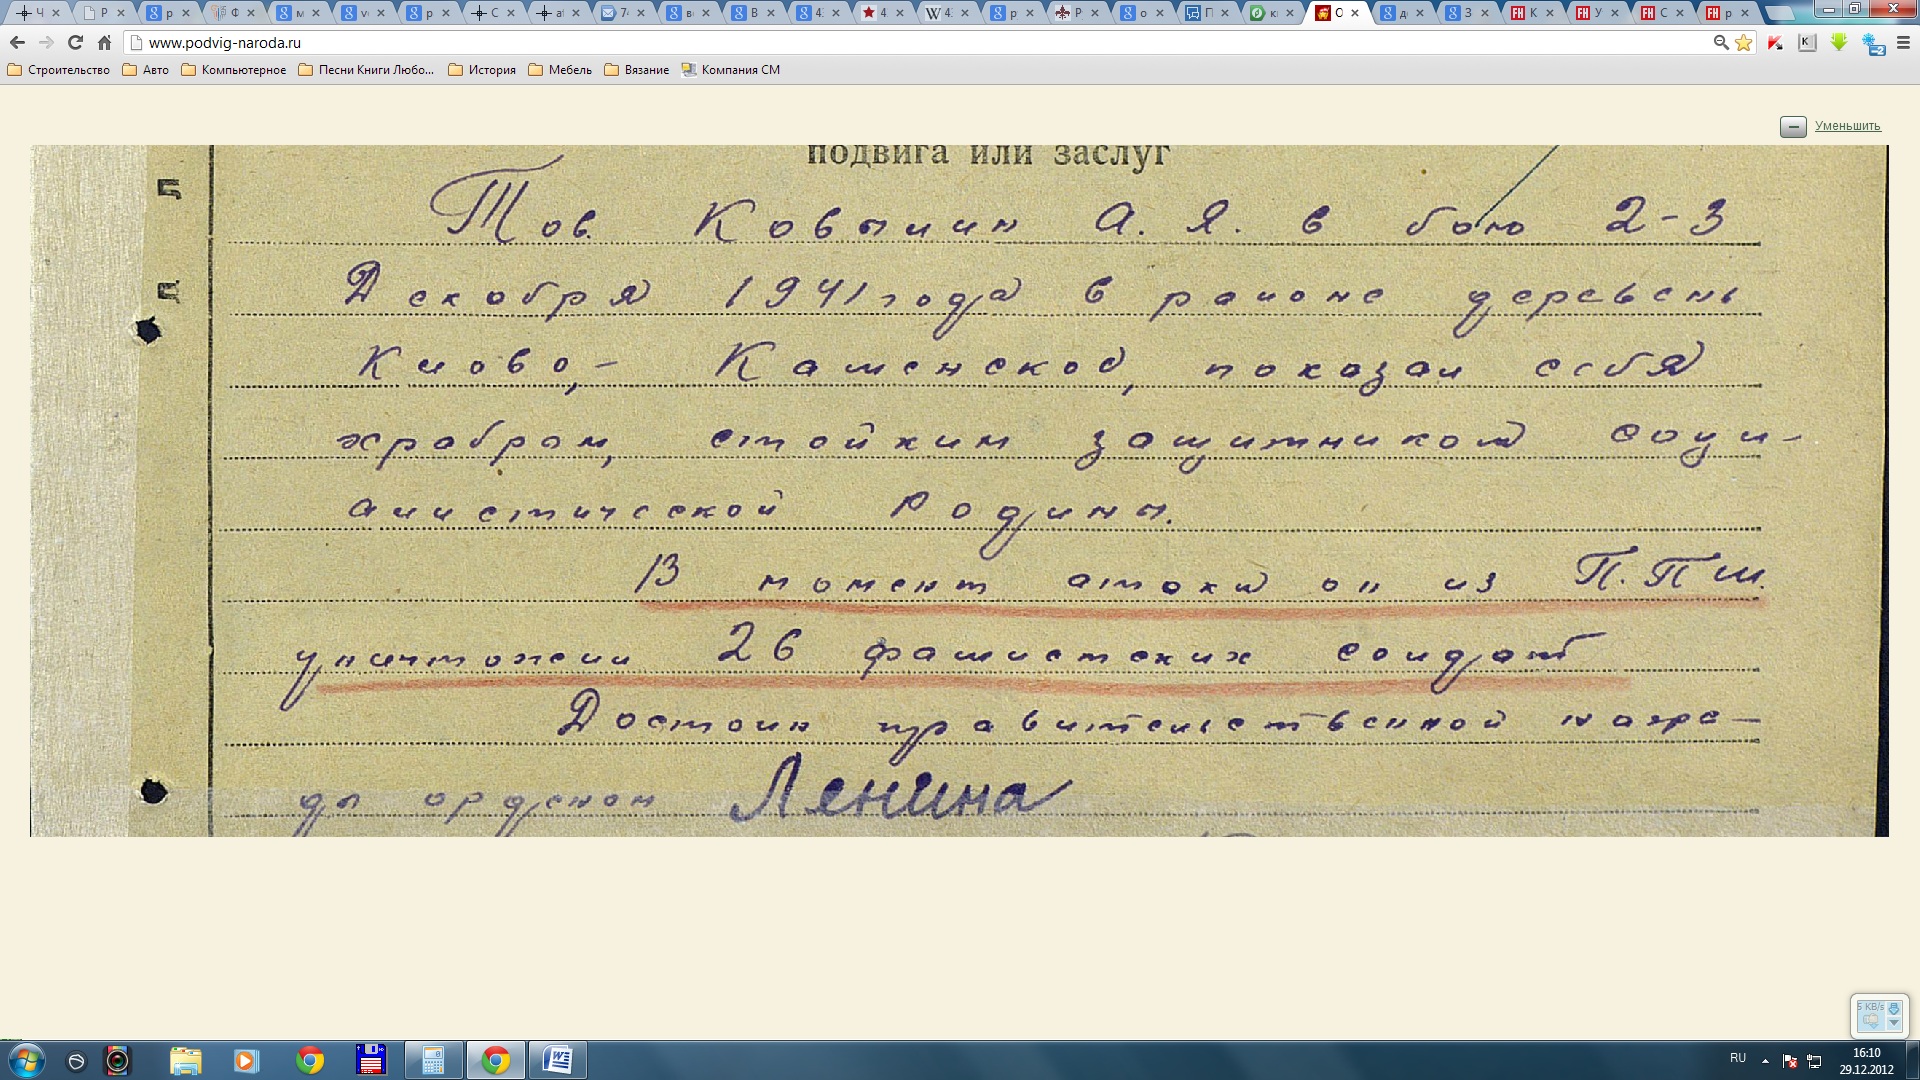 Ч Р р Ф м v р С а 74 в В 4 4 4 р Р о П к О д З К У С р
www.podvig-naroda.ru
Строительство Авто Компьютерное Песни Книги Любо... История Мебель Вязание Компания СМ
Уменьшить
подвига или заслуг
Тов. Ковылин А. Я. в бою 2-3
Декабря 1941 года в районе деревень
Киово,- Каменское, показал себя
храбром, стойким защитником соци-
алистической Родины.
В момент атоки он из П.ПШ.
уничтожил 26 фашистских солдат
Достоин правительственной награ-
ды орденом Ленина
5 KB/s
RU
16:10
29.12.2012